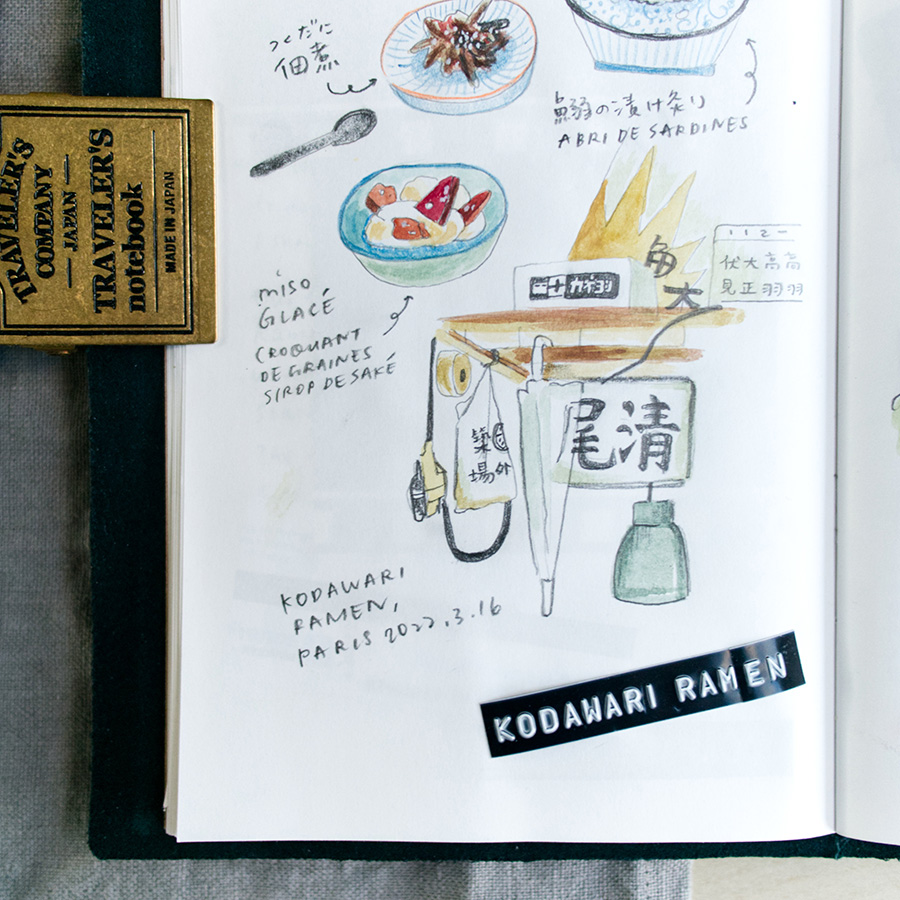 つくだに
佃煮
鰯の漬け炙り
ABRI DE SARDINES
TRAVELER'S
COMPANY
JAPAN
TRAVELER'S
notebook
MADE IN JAPAN
miso
GLACÉ
CROQUANT
DE GRAINES
SIROP DE SAKÉ
角
大
伏大高高
見正羽羽
築
場
外
尾清
KODAWARI
RAMEN,
PARIS 2022.3.16
KODAWARI RAMEN